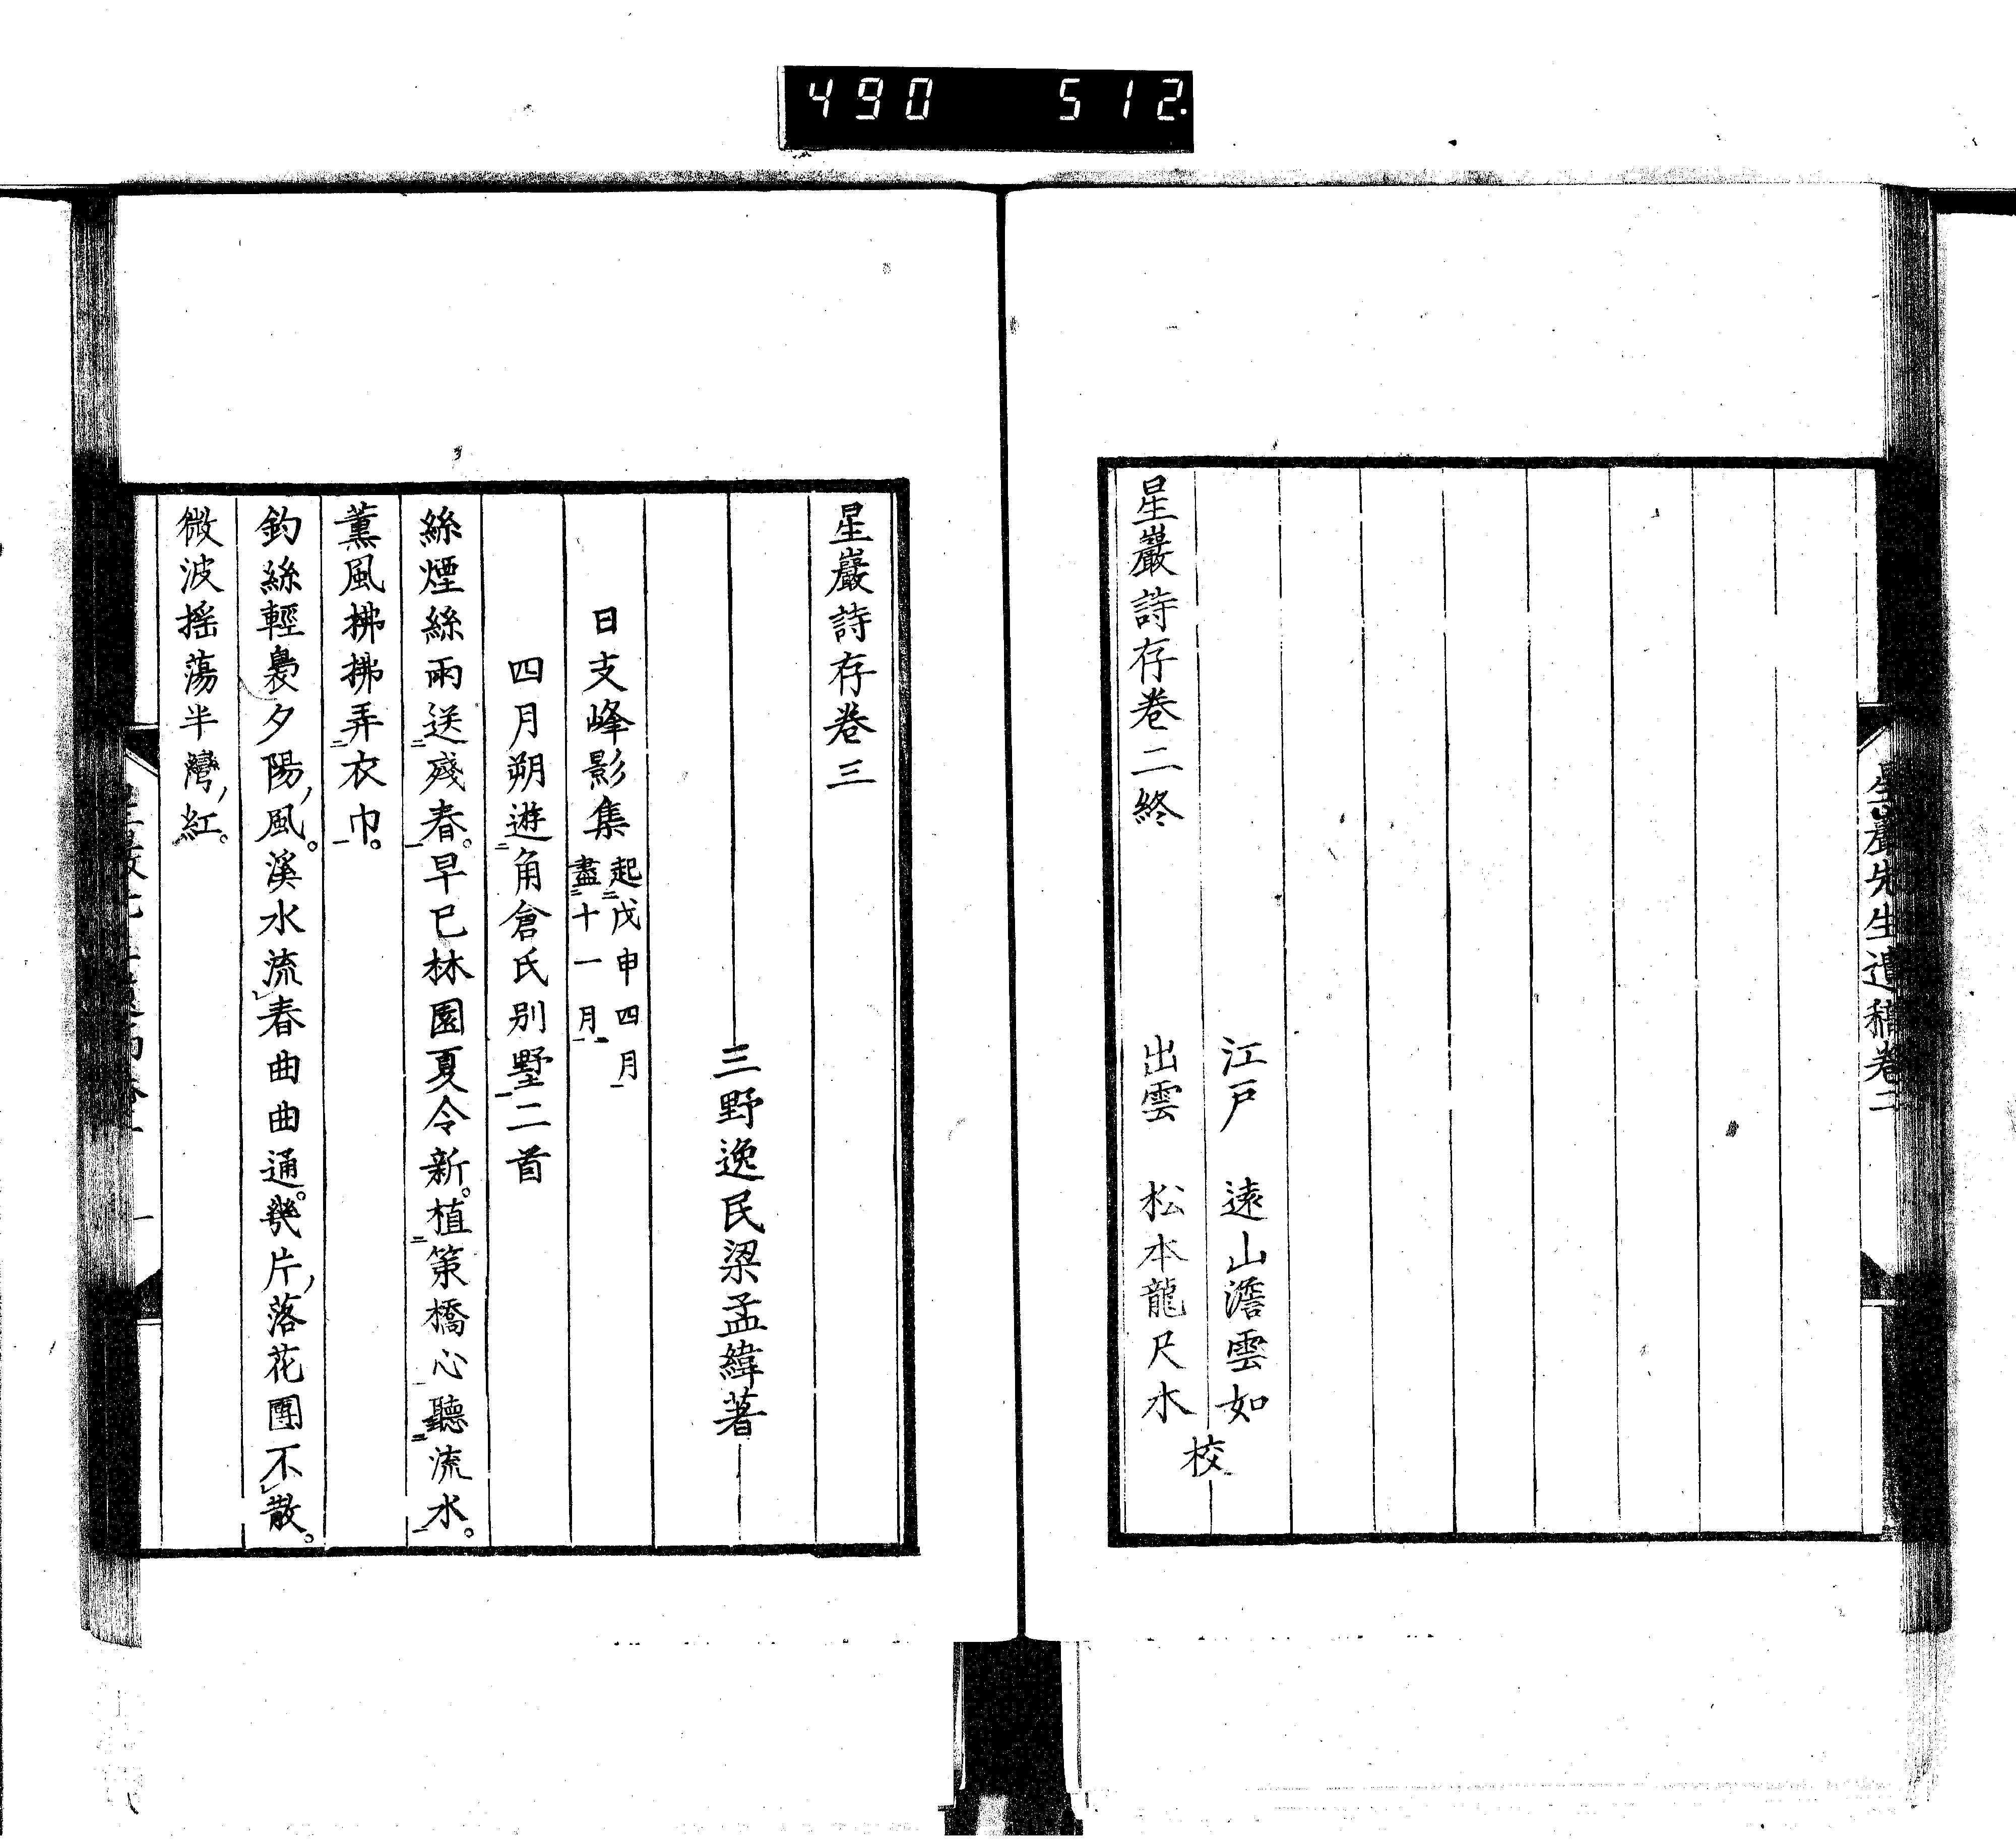 490 512
星巖先生遺稿卷二
江戸 遠山澹雲如
出雲 松本龍尺水
校
星巖詩存卷二終
星巖詩存卷三
三野逸民梁孟緯著
日支峰影集 起戊申四月
盡十一月
四月朔遊角倉氏別墅二首
絲煙絲雨送殘春。早已林園夏令新。植策橋心聽流水。
薫風拂拂弄衣巾。
釣絲輕裊夕陽風。溪水流春曲曲通。幾片落花團不散。
微波搖蕩半灣紅。
一